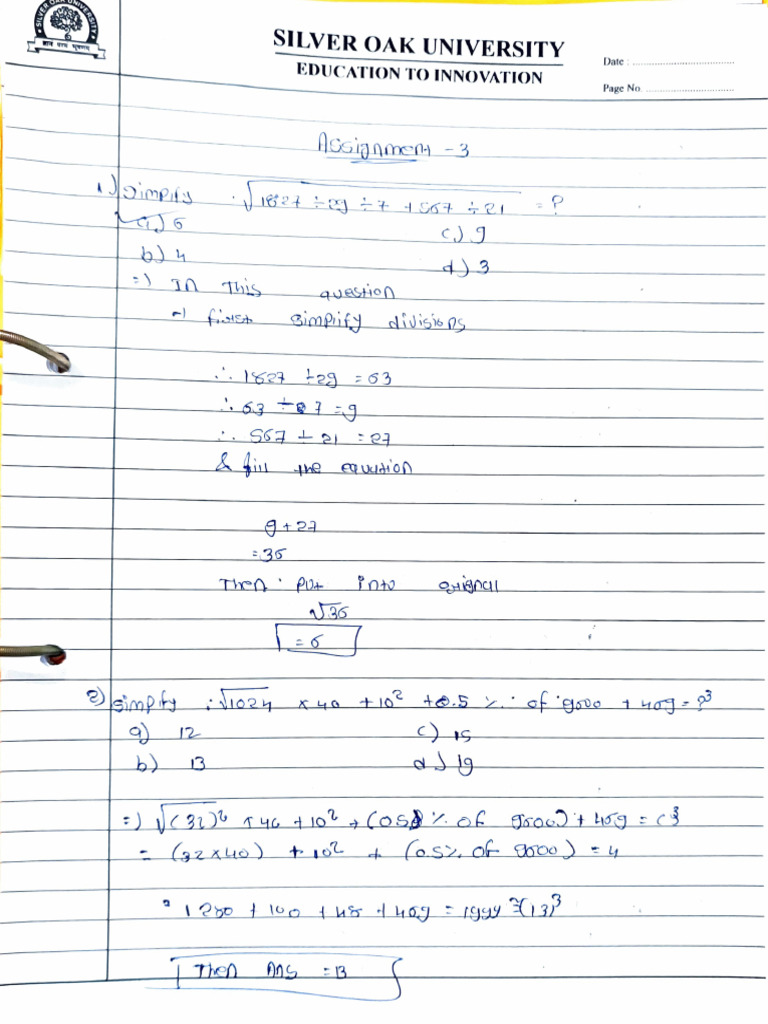 SILVER OAK UNIVERSITY
ज्ञान परम भूषणम्
SILVER OAK UNIVERSITY
EDUCATION TO INNOVATION
Date : ....................................
Page No. ................................
Assignment - 3
1.) Simplify √1827 ÷ 29 ÷ 7 + 567 ÷ 21 = ?
a.) 6 c.) 9
b.) 4 d.) 3
=) In This question
-) first simplify divisions
∴ 1827 ÷ 29 = 63
∴ 63 ÷ 7 = 9
∴ 567 ÷ 21 = 27
& fill the equation
9 + 27
= 36
Then put into original
√36
= 6
2) simplify : √1024 × 40 + 10² + 0.5 % of 9000 + 409 = ?³
a) 12 c) 15
b) 13 d) 19
=) √(32)² × 40 + 10² + (0.5 % of 9000) + 409 = (³
= (32×40) + 10² + (0.5% of 9000) = 4
= 1280 + 100 + 45 + 409 = 1999 = (13)³
Then Ans = 13